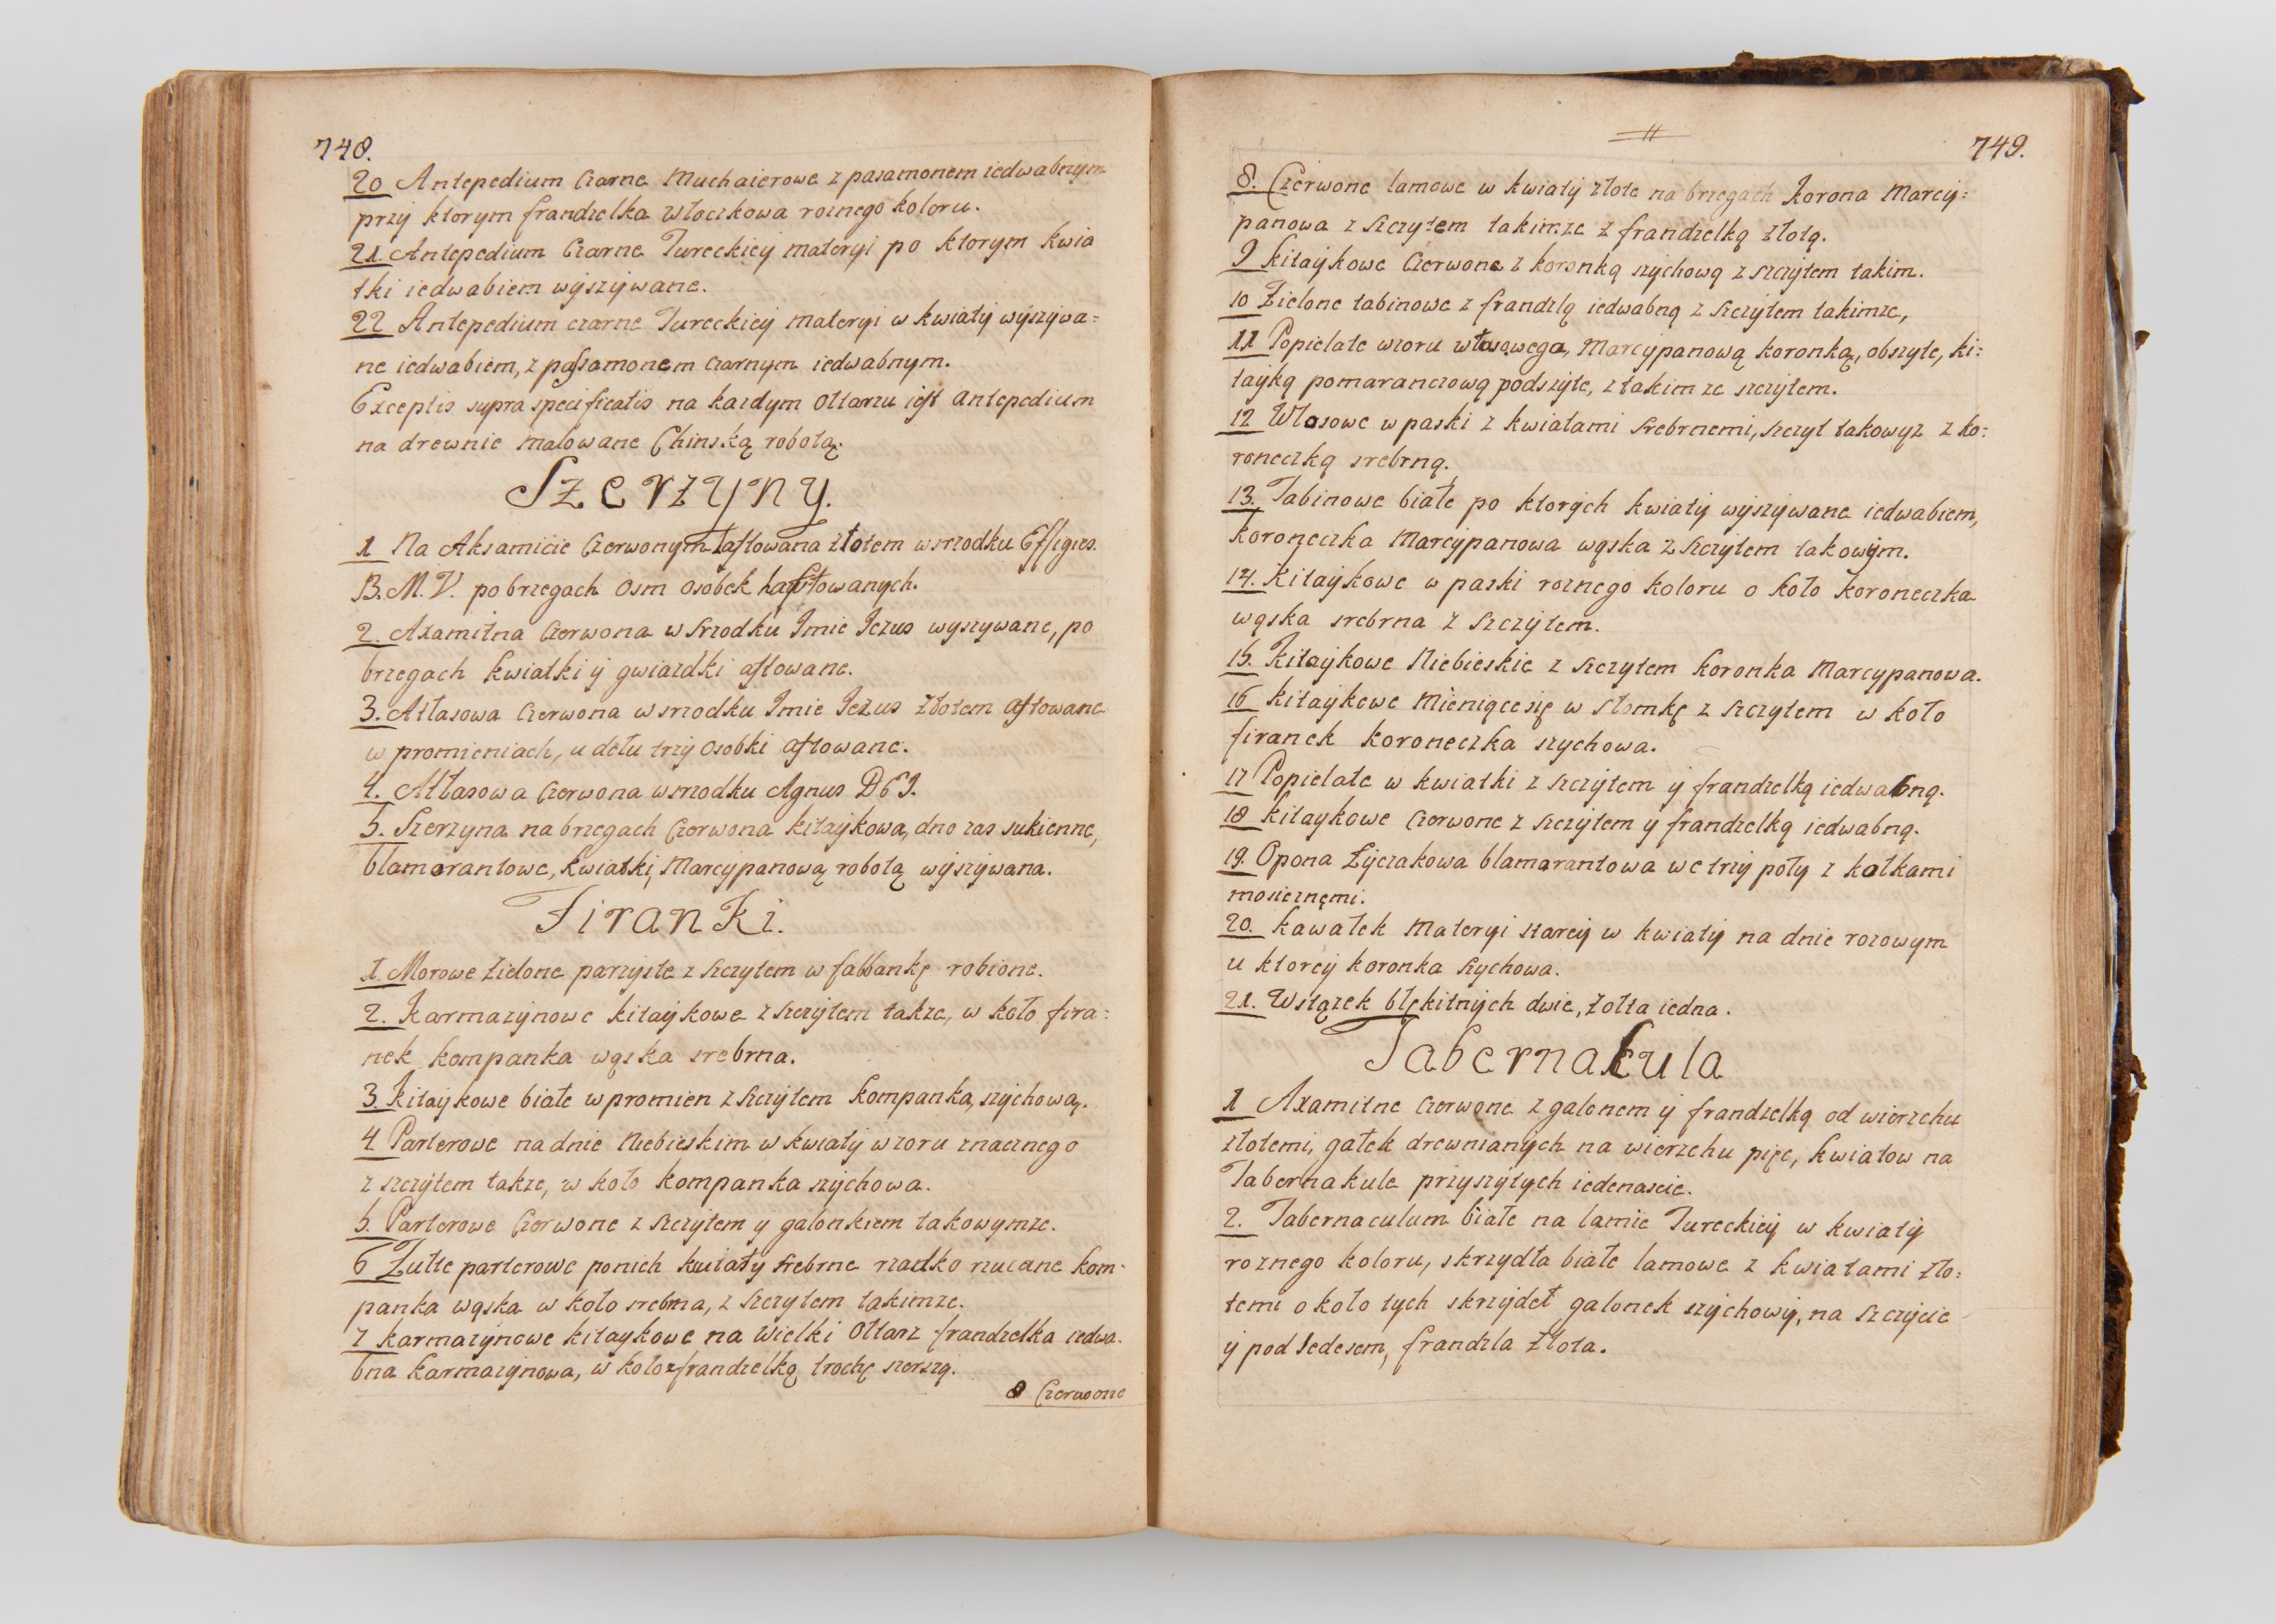 748.
20 Antepedium Czarne Muchaierowe z pasamonem iedwabnym
przÿ ktorym frandzelka włoczkowa roznego koloru.
21. Antepedium Czarne Tureckieÿ materyi po ktorym kwia
tki iedwabiem wÿszÿwane.
22 Antepedium czarne Tureckieÿ materyi w kwiatÿ wÿszÿwa=
ne iedwabiem, z passamonem czarnym iedwabnym.
Exceptis supra specificatis na kazdym Ottarzu iest Antepedium
na drewnie malowane Chinską robotą.
Szerzyny.
1 Na Aksamicie Czerwonym haftowana złotem w srzodku Effigies
B. M. V. po brzegach Osm Osobek haftowanÿch.
2. Axamitna Czerwona w srzodku Jmie Jezus wyszywane, po
brzegach kwiatki ÿ gwiazdki aftowane.
3. Atłasowa Czerwona w srzodku Jmie Jezus złotem aftowane
w promieniach, u dołu trzÿ Osobki aftowane.
4. Atłasowa Czerwona w srzodku Agnus DEI.
5. Szerzyna na brzegach Czerwona kitaÿkowa, dno zas sukienne,
blamarantowe, kwiatki, Marcypanową robotą wÿszÿwana.
Firanki.
1. Morowe zielone parzÿste z szczytem w falbankę robione.
2. Karmazÿnowe kitaÿkowe z szczÿtem takze, w koło fira=
nek kompanka wąska srebrna.
3. Kitaÿkowe białe w promien z szczÿtem kompanka, szÿchową.
4 Parterowe na dnie Niebieskim w kwiatÿ wzoru znacznego
z szczÿtem takze, w koło kompanka szÿchowa.
5. Parterowe Czerwone z szczÿtem ÿ galonkiem takowymze.
6 Zułte parterowe po nich kwiaty srebrne rzadko rzucane kom=
panka wąska w koło srebrna, z szczytem takimze.
7 Karmazÿnowe kitaykowe na Wielki Ottarz frandzelka iedwa=
bna karmazÿnowa, w koło z frandzelką trochę szerszą.
8 Czerwone
749.
8. Czerwone lamowe w kwiatÿ złote na brzegach korona Marcy=
panowa z szczytem takimze z frandzelką złotą.
9 Kitaÿkowe Czerwone z koronką szÿchową z szczÿtem takim.
10 Zielone tabinowe z frandzlą iedwabną z szczÿtem takimze,
11 Popielate wzoru włosowego, Marcypanową koronką, obszyte, ki=
taÿką pomaranczową podszÿte, z takimze szczÿtem.
12 Włosowe w paski z kwiatami srebrnemi, szczyt takowyz z ko=
roneczką srebrną.
13. Tabinowe białe po ktorÿch kwiatÿ wÿszÿwane iedwabiem,
koroneczka Marcypanowa wąska z szczÿtem takowÿm.
14. Kitaÿkowe w paski roznego koloru o koło koroneczka
wąska srebrna z szczÿtem.
15. Kitaÿkowe Niebieskie z szczytem koronka Marcypanowa.
16 Kitaÿkowe Mieniące się w słomkę z szczytem w koło
firanek koroneczka szychowa.
17 Popielate w kwiatki z szczÿtem ÿ frandzelką iedwabną.
18 Kitaykowe Czerwone z szczÿtem ÿ frandzelką iedwabną.
19. Opona Łÿczakowa blamarantowa we trzÿ poły z kółkami
mosieznęmi.
20. Kawałek Materyi stareÿ w kwiatÿ na dnie rozowym
u ktoreÿ koronka szychowa.
21. Wstązek błękitnÿch dwie, żółta iedna.
Tabernakula
1 Axamitne Czerwone z galonem ÿ frandzelką od wierzchu
złotemi, gałek drewnianÿch na wierzchu pięc, kwiatow na
Tabernakule przyszÿtych iedenascie.
2. Tabernaculum białe na lamie Tureckieÿ w kwiatÿ
roznego koloru, skrzydła białe lamowe z kwiatami zło=
temi o koło tych skrzÿdeł galonek szÿchowÿ, na szczÿcie
ÿ pod sedesem, frandzla złota.